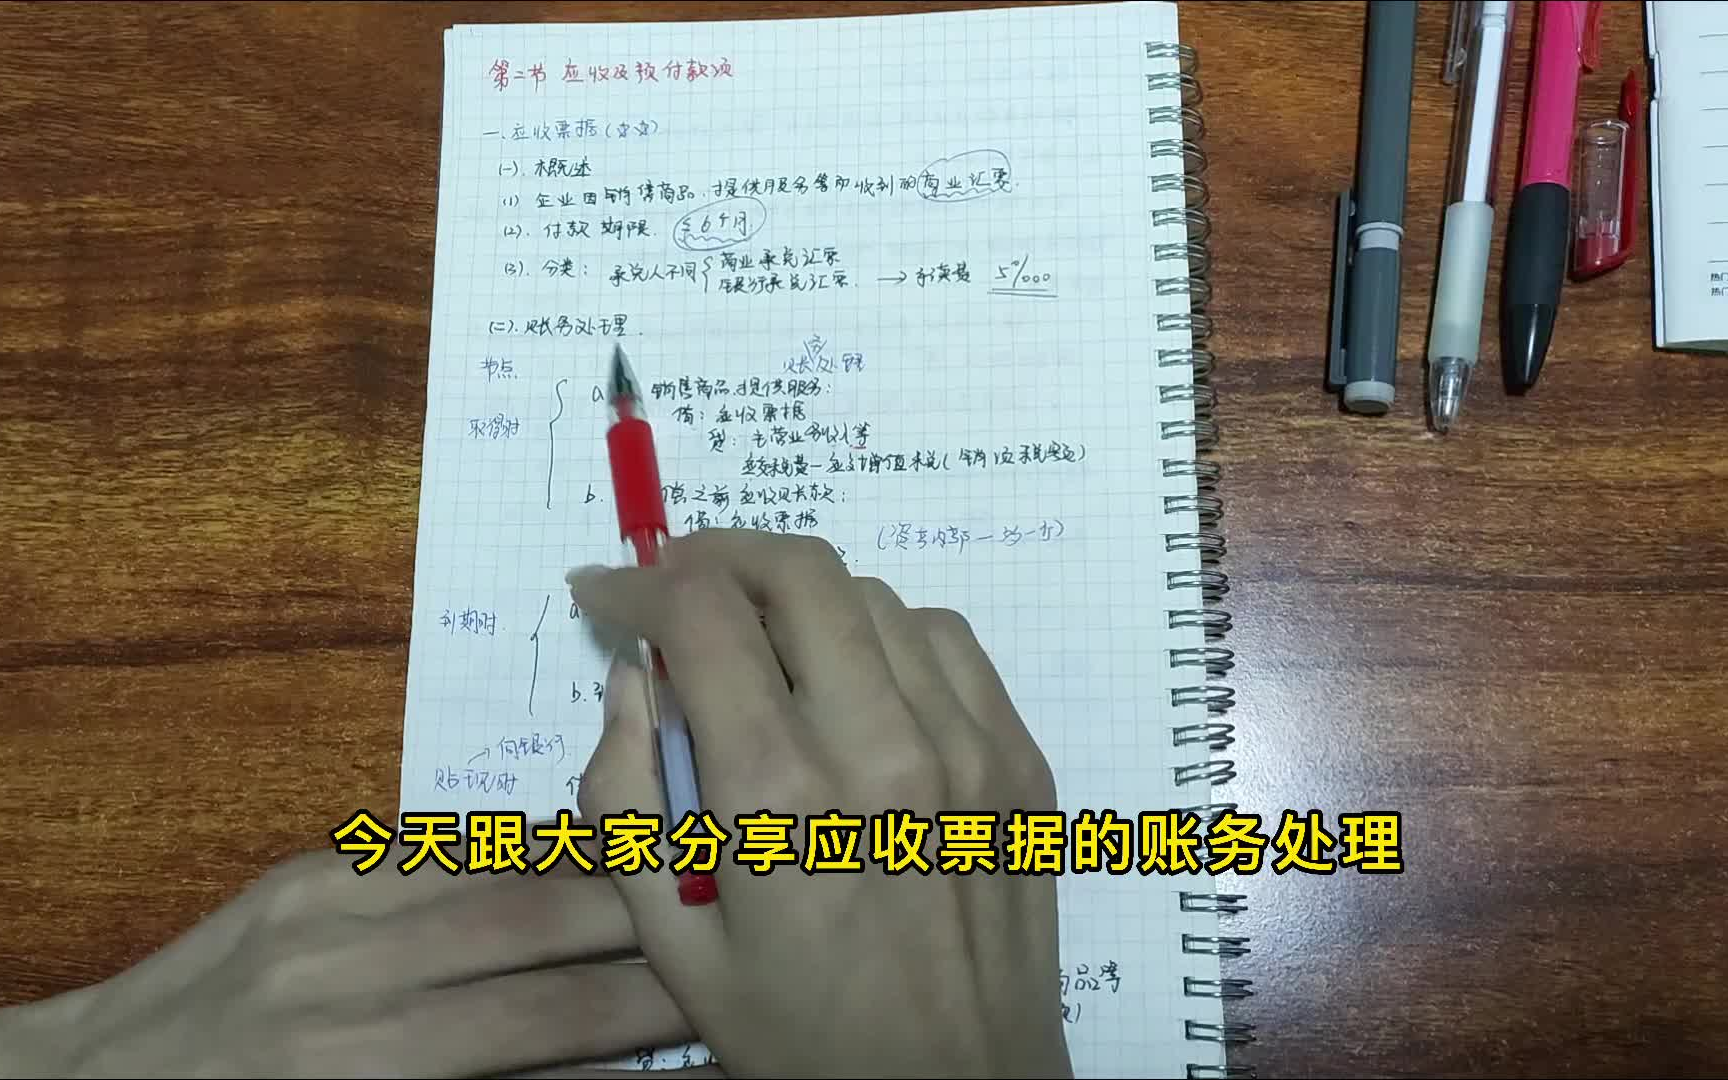 第二节 应收及预付款项
一、应收票据(☆☆)
(一). 概述
(1) 企业因销售商品、提供服务等而收到的商业汇票.
(2). 付款期限. ≤6个月
(3). 分类: 承兑人不同 { 商业承兑汇票
银行承兑汇票. → 手续费 5‱
(二). 账务处理.
节点 账务处理
取得时
a 销售商品、提供服务:
借: 应收票据
贷: 主营业务收入等
应交税费-应交增值税(销项税额)
b. 偿之前应收账款:
借: 应收票据
(资产内部一增一减)
到期时.
a
b.
→ 向银行
贴现时
今天跟大家分享应收票据的账务处理
商品等
贷: 应收